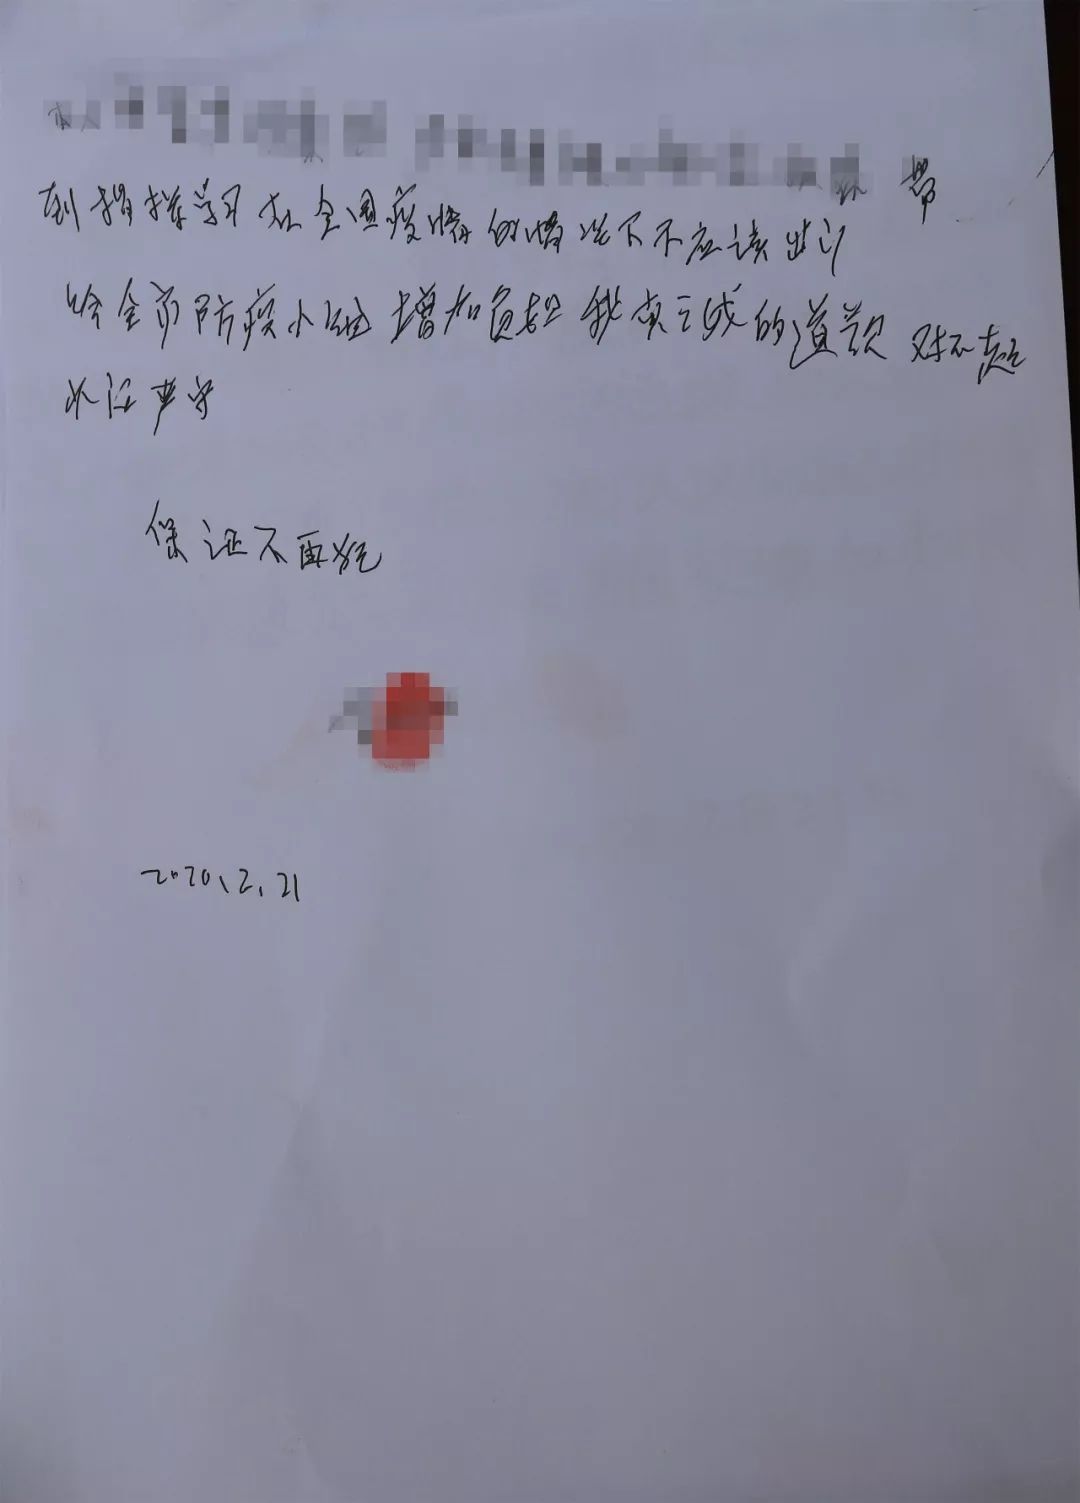 本人 帮
到指挥学习在全国疫情的情况下不应该出门
给全市防疫小组增加负担我真诚的道歉对不起
保证严守
保证不再犯
2020.2.21